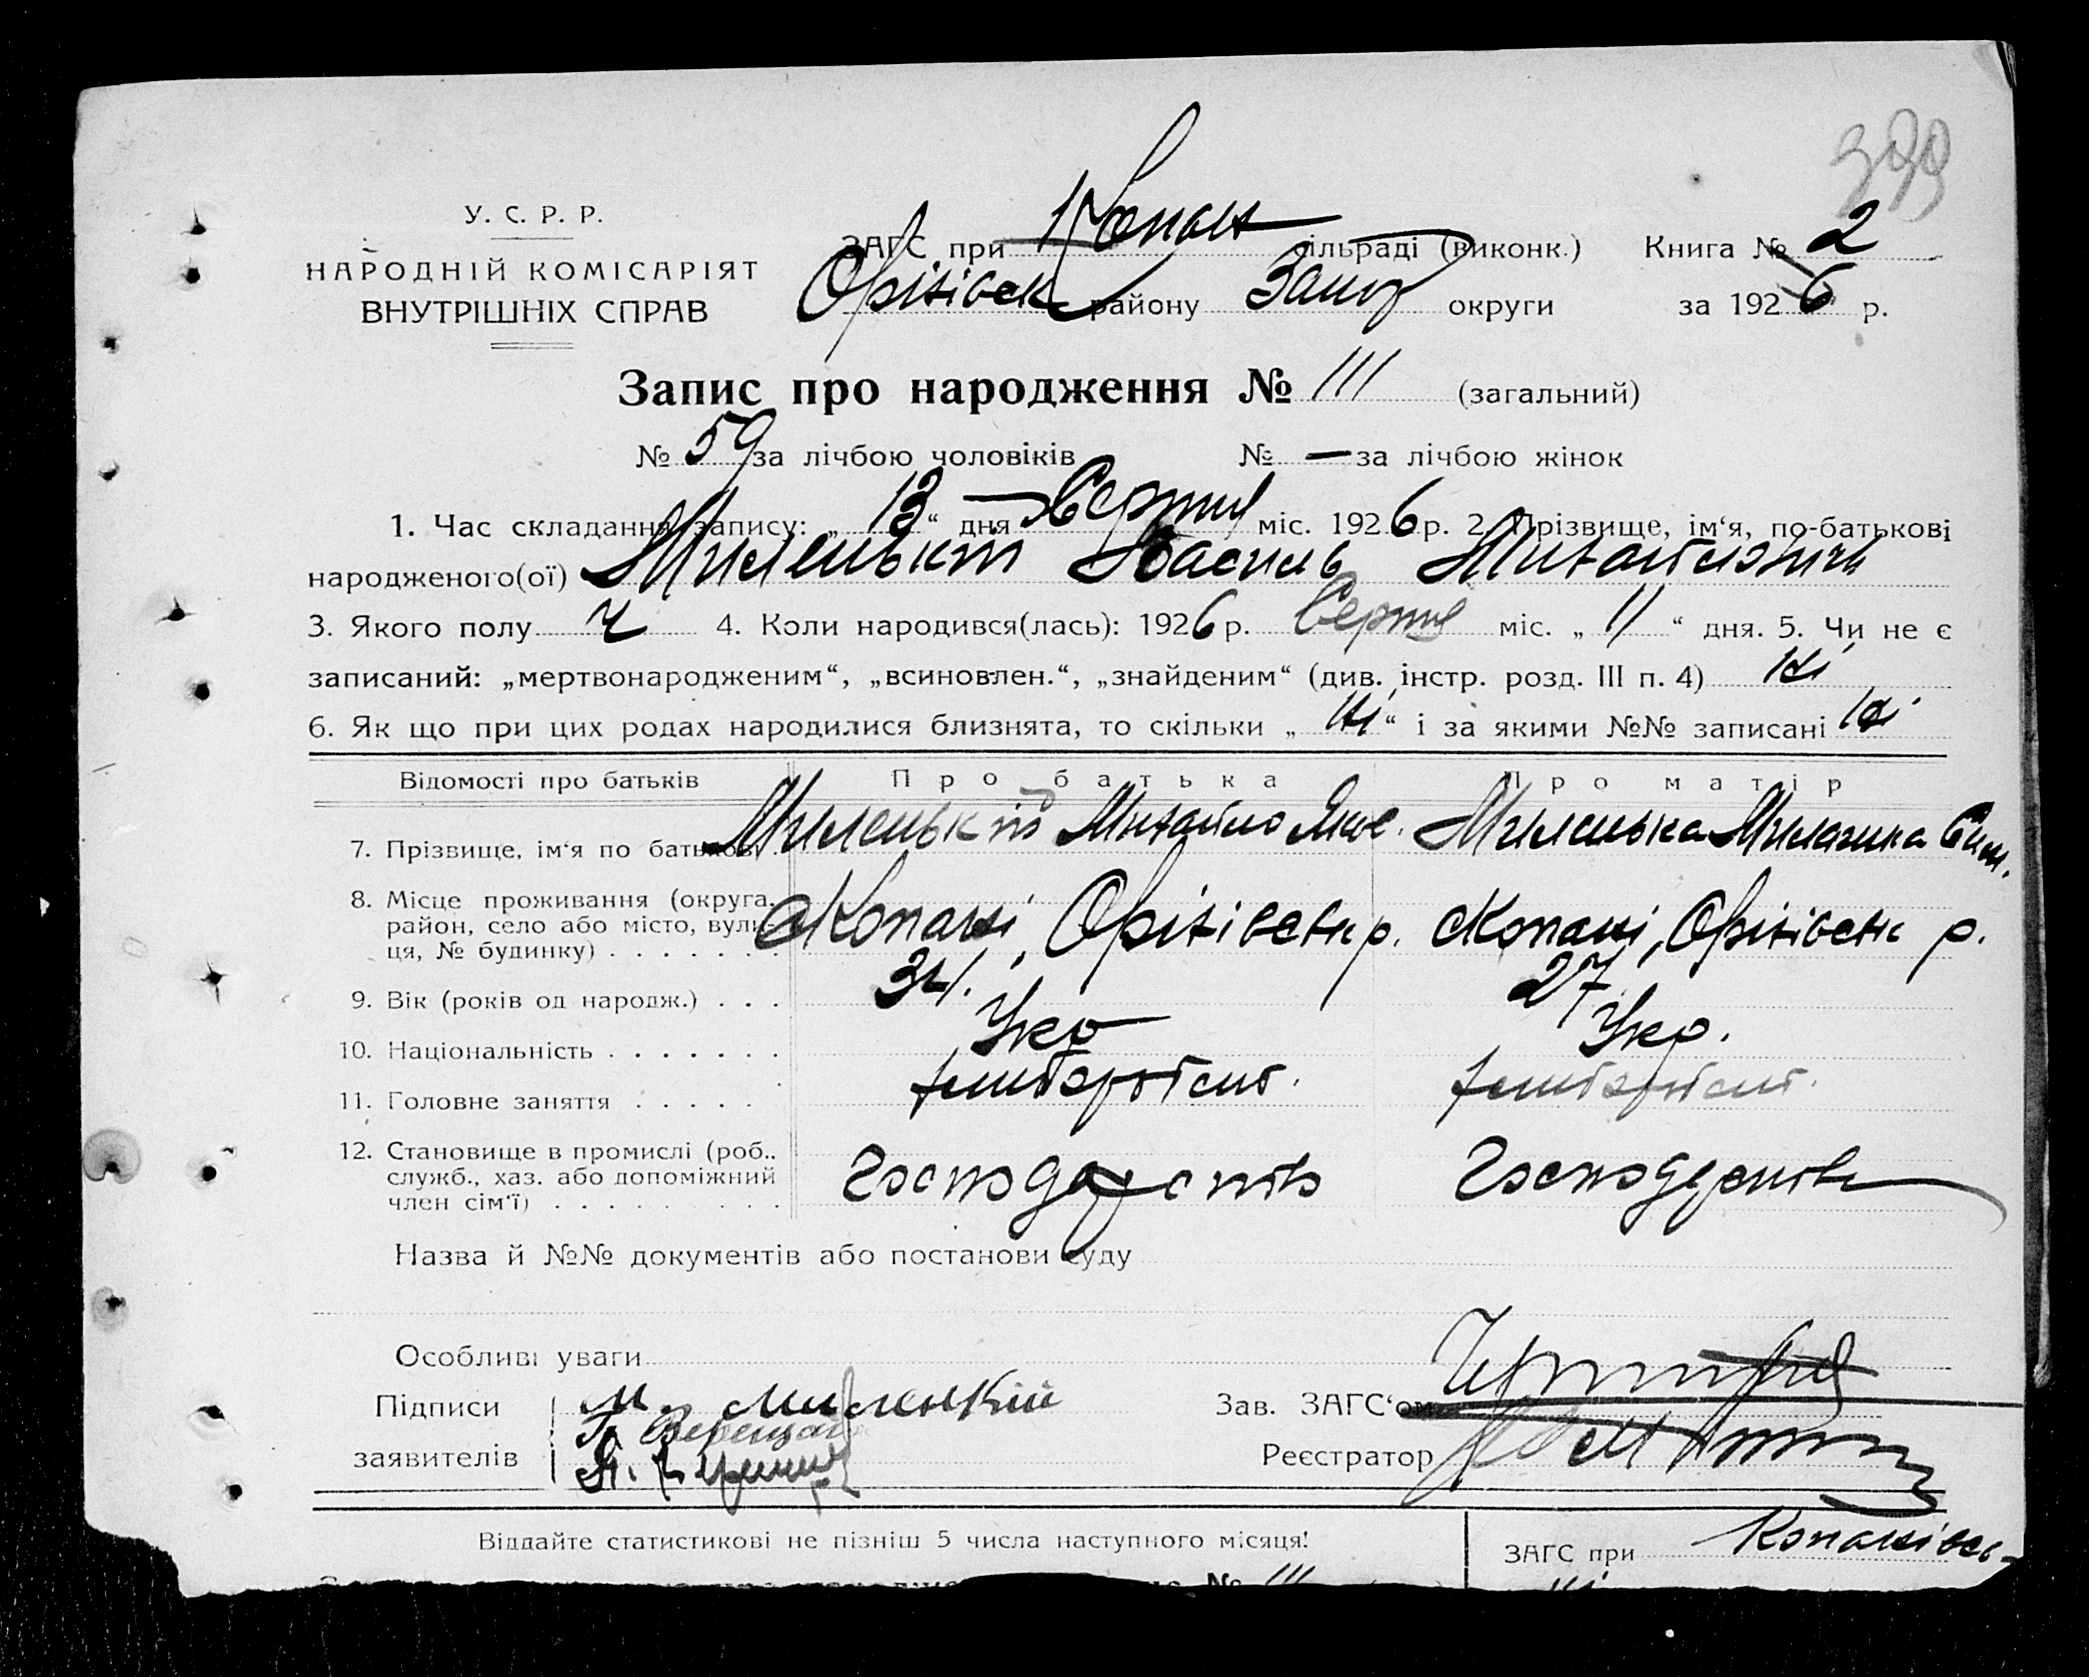 399
У. С. Р. Р.
НАРОДНІЙ КОМІСАРІЯТ
ВНУТРІШНІХ СПРАВ
ЗАГС при Копан сільраді (виконк.) Книга № 2
Оріхівськ району Запор округи за 1926 р.
Запис про народження № 111 (загальний)
№ 59 за лічбою чоловіків № — за лічбою жінок
1. Час складання запису: „13“ дня Серпня міс. 1926 р. 2. Прізвище, ім‘я, по-батькові
народженого(ої) Миленькій Василь Михайлович
3. Якого полу ч 4. Коли народився(лась): 1926 р. Серпня міс. „11“ дня. 5. Чи не є
записаний: „мертвонародженим“, „всиновлен.“, „знайденим“ (див. інстр. розд. III п. 4) Ні
6. Як що при цих родах народилися близнята, то скільки „Ні“ і за якими №№ записані Ні
Відомості про батьків Про батька Про матір
7. Прізвище, ім‘я по батькові Миленькій Михайло Яков. Миленька Сим.
8. Місце проживання (округа, район, село або місто, вулиця, № будинку) Копані, Оріхівськ р. Копані, Оріхівськ р.
9. Вік (років од народж.) 34. 27
10. Національність Укр Укр.
11. Головне заняття хлібороbство. хлібороbство.
12. Становище в промислі (роб.. служб., хаз. або допоміжний член сім‘ї)
Назва й №№ документів або постанови суду
Особливі уваги
Підписи М. Миленкій Зав. ЗАГС‘ом
заявителів Реєстратор
Віддайте статистикові не пізніш 5 числа наступного місяця!
ЗАГС при Копанівсь-
№ 111